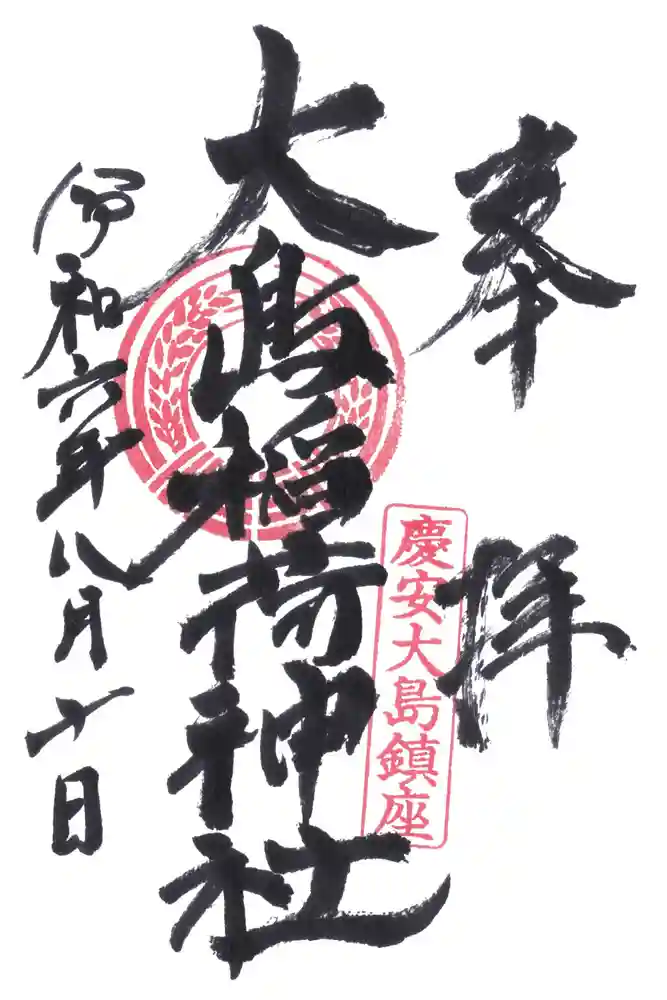 奉拝
慶安大島鎮座
大島稲荷神社
令和六年八月十日